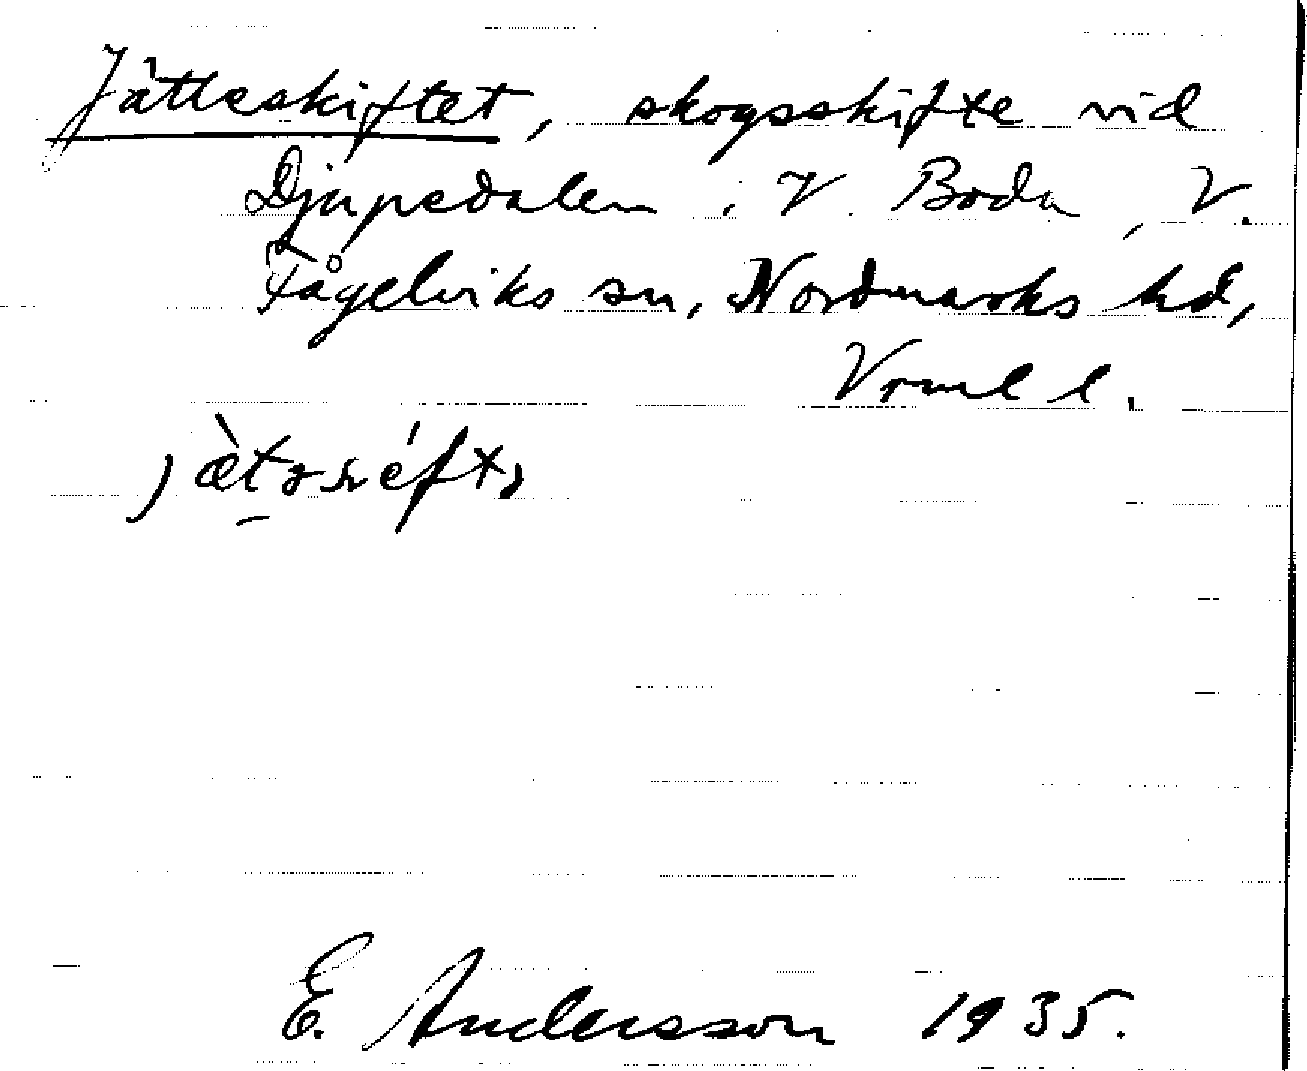 Jätteskiftet, skogsskifte vid
Djupedalen i V. Boda, V.
Fågelviks sn, Nordmarks hd,
Vrml l.
E. Andersson 1935.